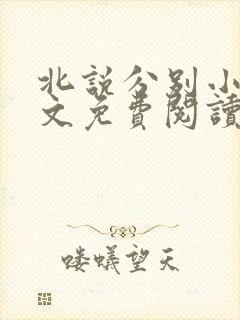 北説分别小
文免費閱讀
喽蟻望天